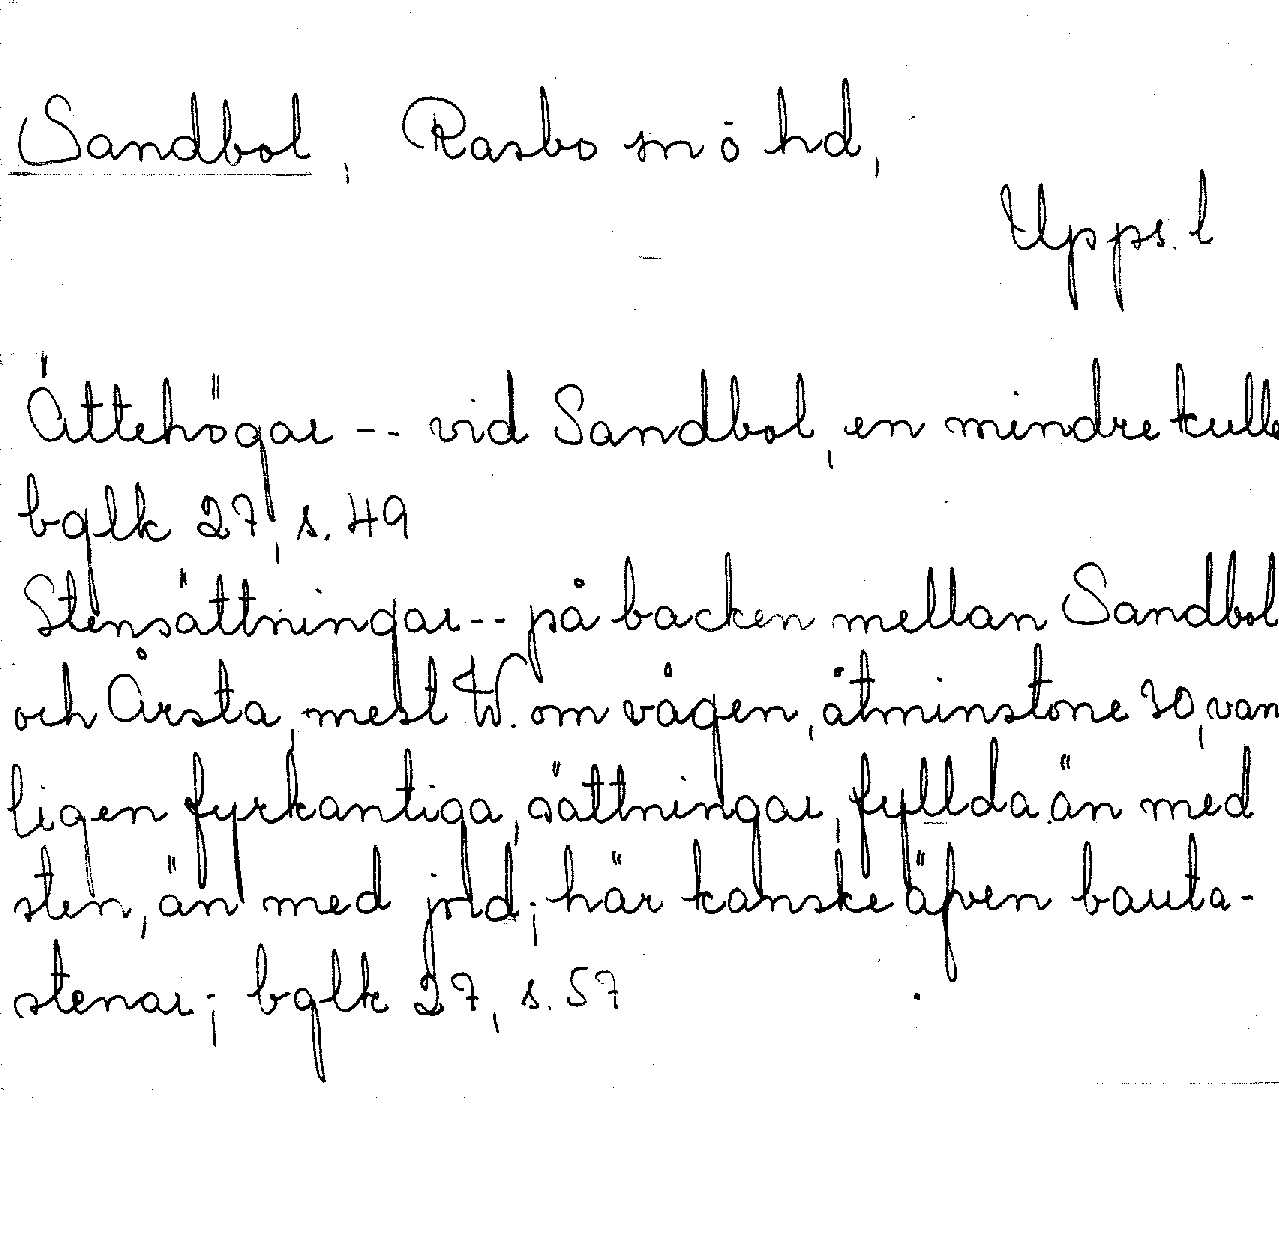 Sandbol, Rasbo sn o hd,
Upps. l
Ättehögar -- vid Sandbol, en mindre kulle
bglk 27, s. 49
Stensättningar -- på backen mellan Sandbol
och Årsta, mest W. om vägen, åtminstone 30, van
ligen fyrkantiga, sättningar, fyllda än med
sten, än med jord; här kanske äfven bauta-
stenar; bglk 27, s. 57